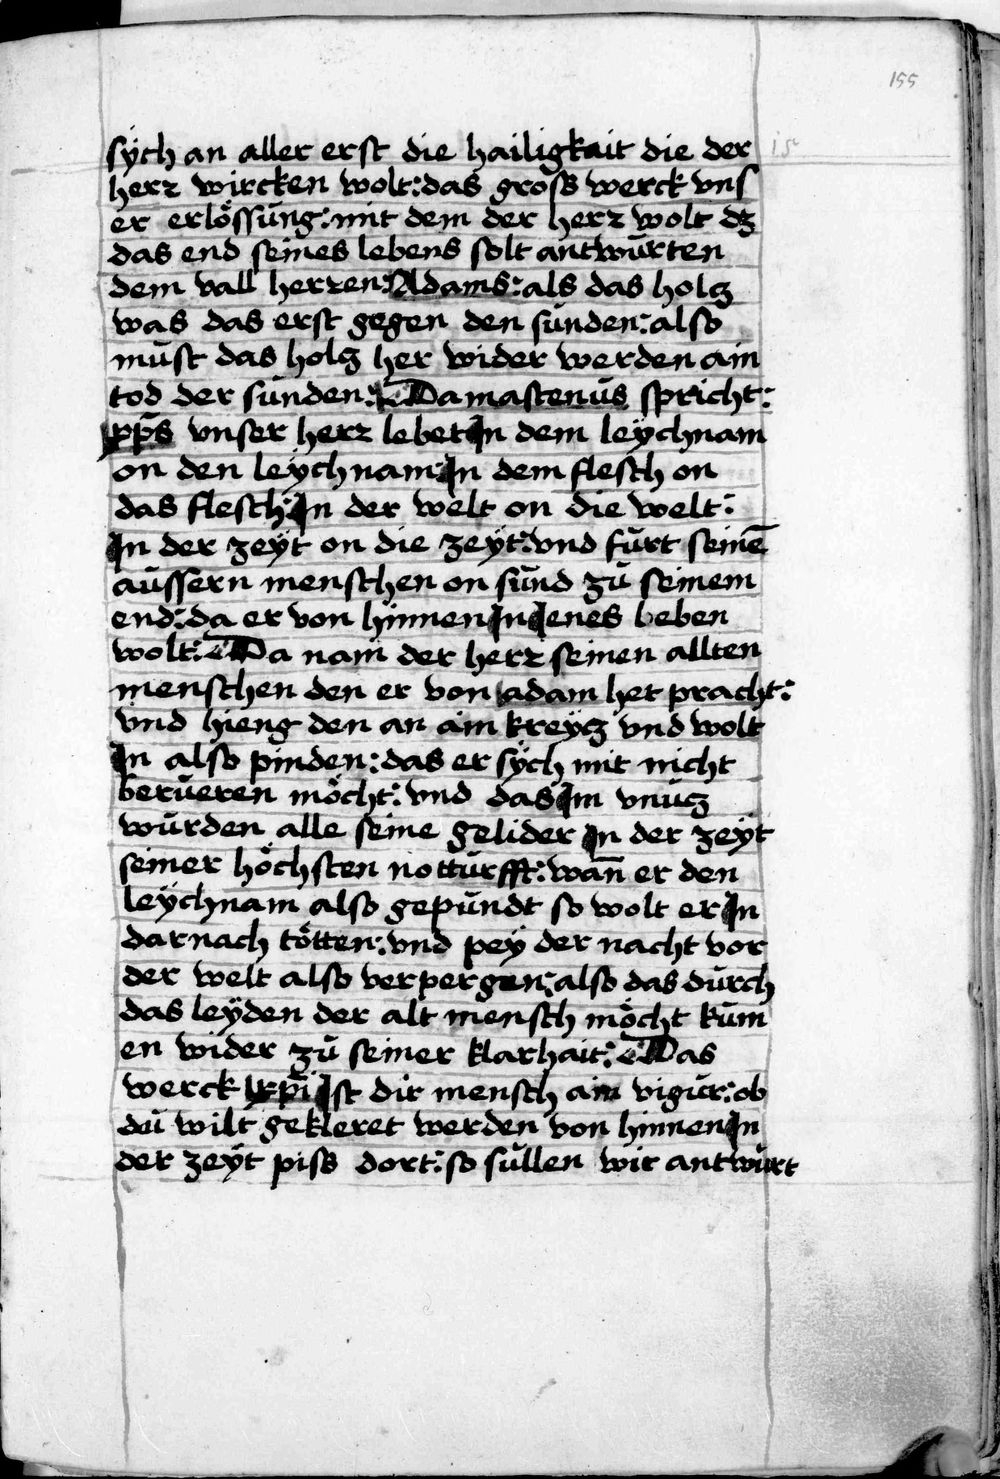 155
sÿch an aller erst die hailigkait die der
herr wircken wolt: das gross werck vns
er erlössung: mit dem der herr wolt dz
das end seines lebens solt antwürten
dem vall herren: Adams: als das holtz
was das erst gegen den sünden: also
müst das holtz her wider werden ain
tod der sünden: Damascenus spricht:
xp̄s vnser herr lebet In dem leÿchnam
on den leÿchnam: In dem flesch on
das flesch: In der welt on die welt:
In der zeÿt on die zeÿt: vnd fürt seinē
aüssern menschen on sünd zü seinem
end: da er von hinnen In Ienes leben
wolt: Da nam der herr seinen allten
menschen den er von adam het pracht:
vnd hieng den an ain kreÿtz vnd wolt
In also pinden: das er sÿch mit nicht
berüeren möcht: vnd das Im vnütz
würden alle seine gelider In der zeÿt
seiner höchsten notturfft: wan̄ er den
leÿchnam also gepündt so wolt er In
darnach tötten: vnd peÿ der nacht vor
der welt also verpergen: also das dürch
das leÿden der alt mensch möcht küm
en wider zü seiner klarhait: Das
werck xp̄i Ist dir mensch ain vigür: ob
dü wilt gekleret werden von hinnen In
der zeÿt piss dort: so süllen wir antwürt